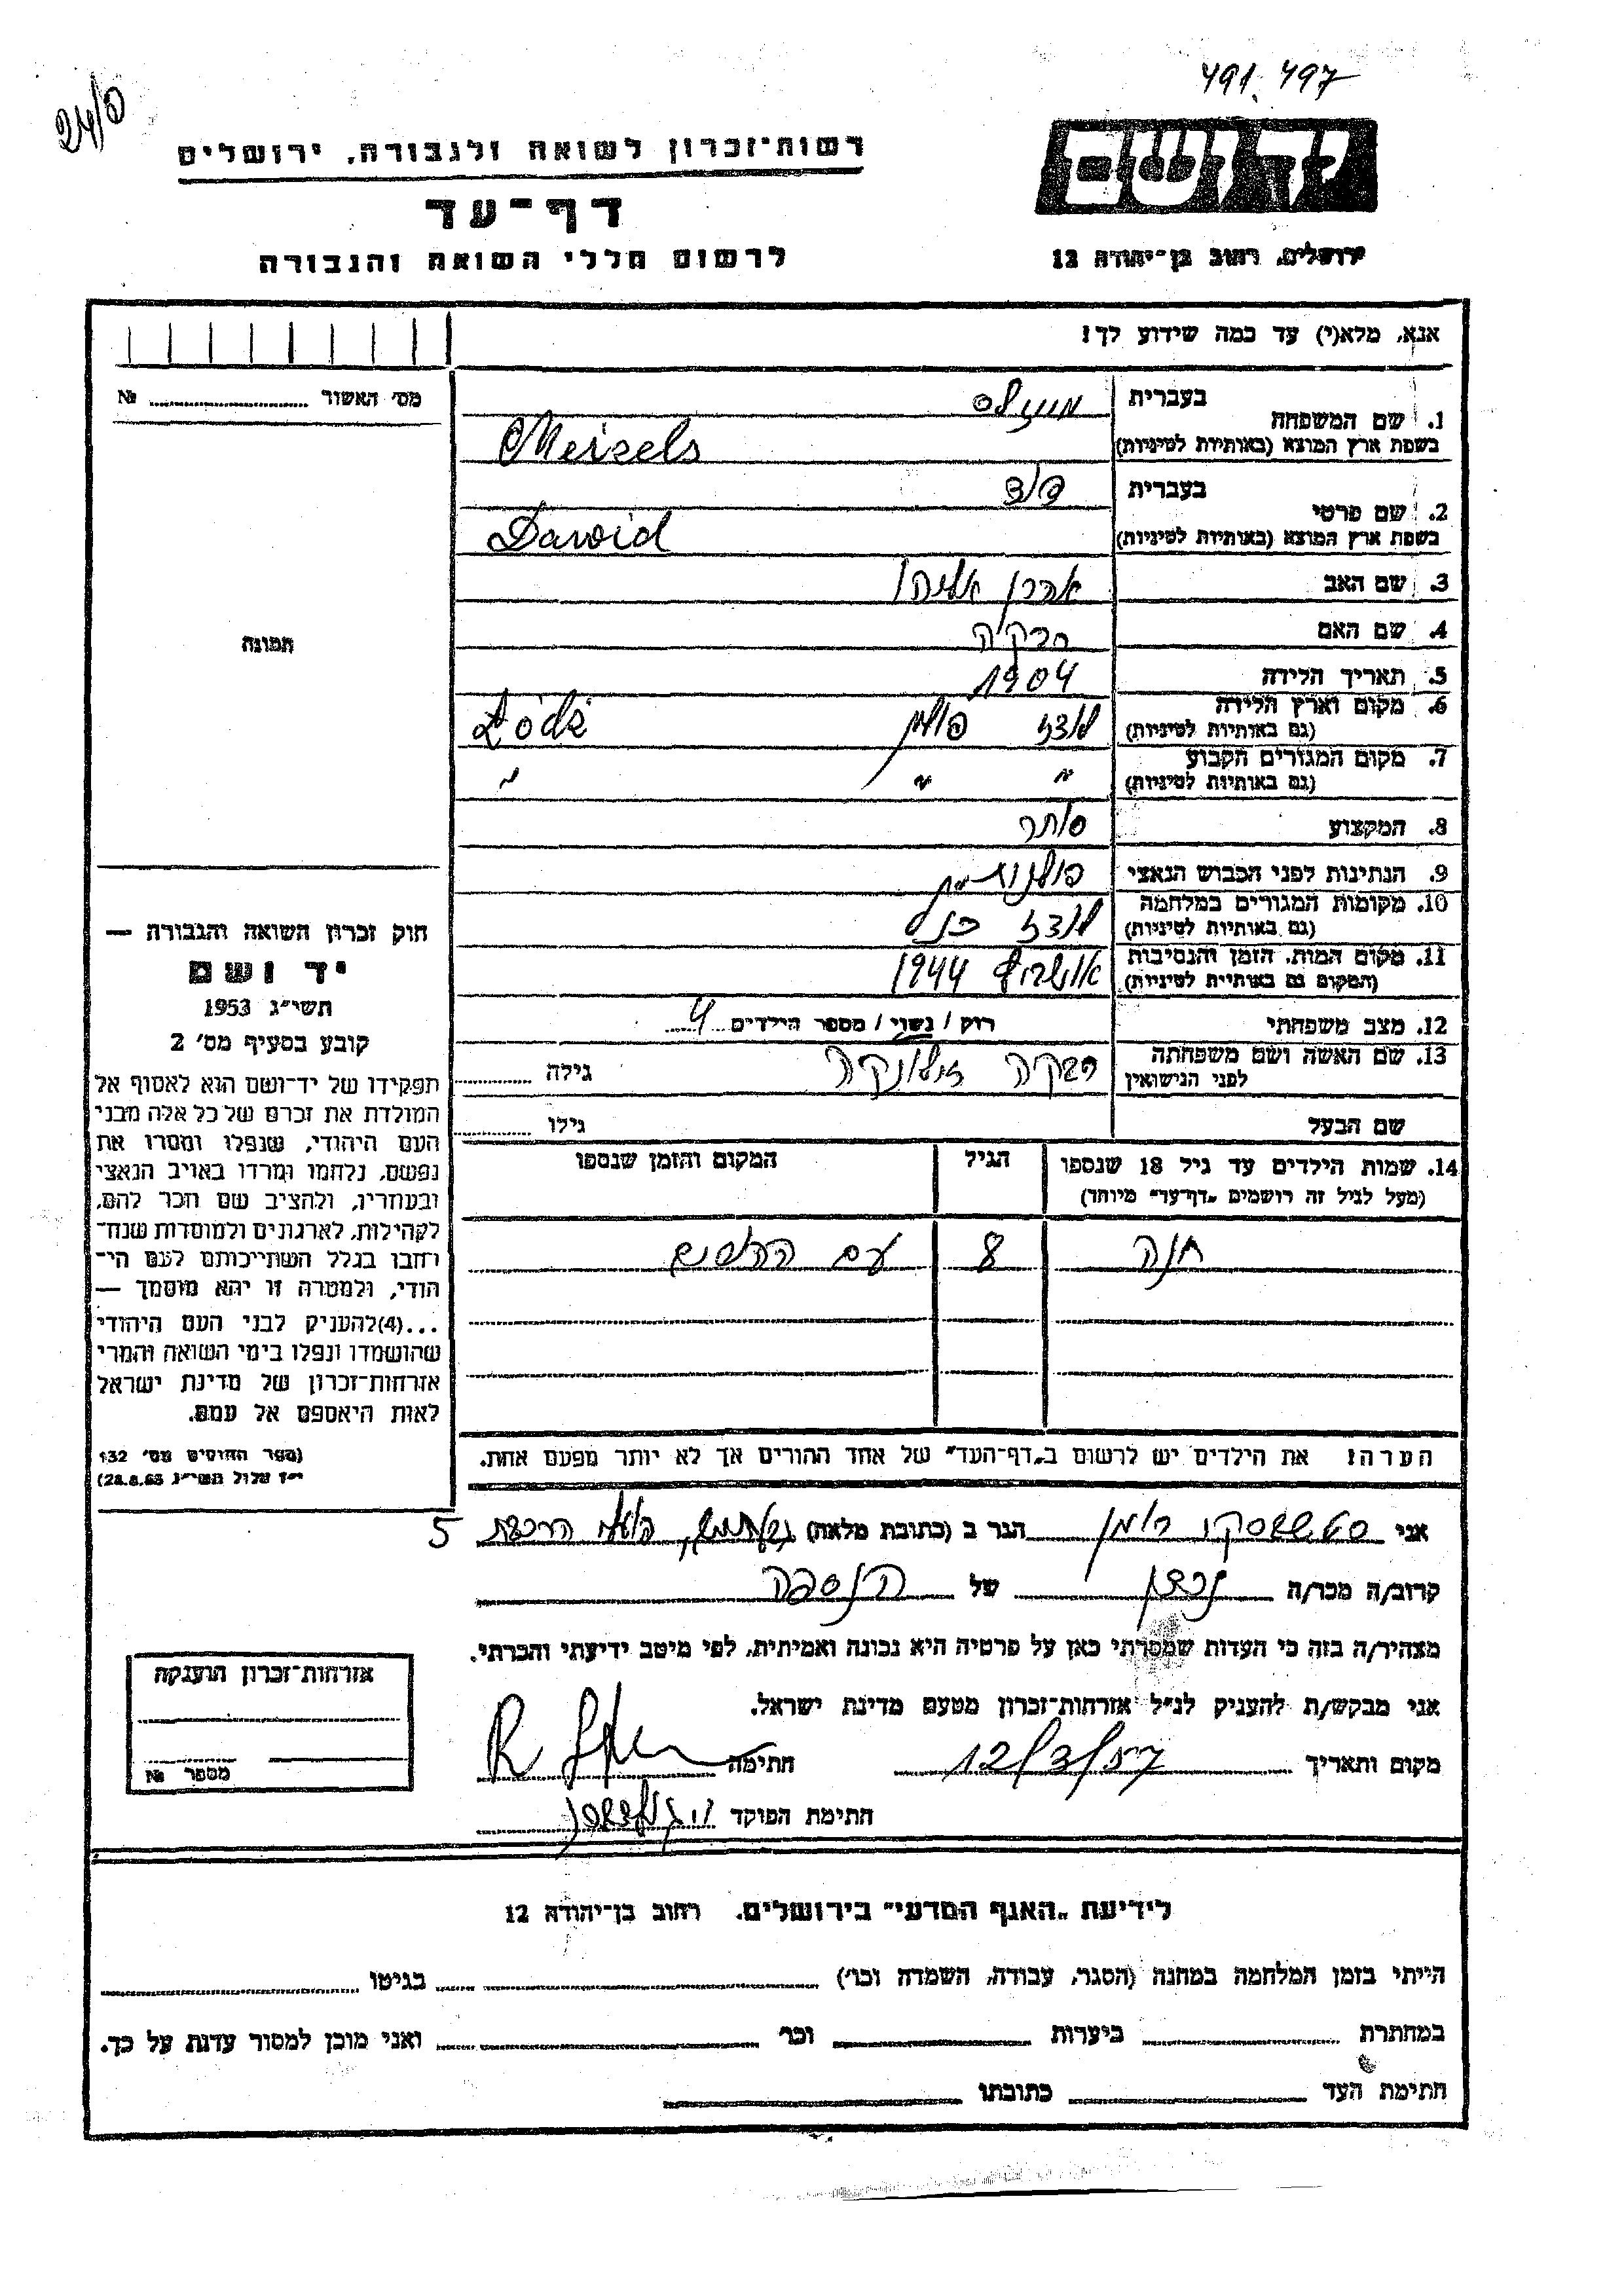 491.497
24/פ
רשות־זכרון לשואה ולגבורה, ירושלים
דף־עד
לרשום חללי השואה והגבורה
יד ושם
ירושלים, רחוב בן־יהודה 12
אנא, מלא(י) עד כמה שידוע לך!
מס' האשור № 
תמונה
בעברית
1. שם המשפחה
בשפת ארץ המוצא (באותיות לטיניות) Meizels
2. שם פרטי
בעברית דוד
בשפת ארץ המוצא (באותיות לטיניות) Dawid
3. שם האב אהרן אליהו
4. שם האם רבקה
5. תאריך הלידה 1904
6. מקום וארץ הלידה
(גם באותיות לטיניות) לודז פולין Łódź
7. מקום המגורים הקבוע
(גם באותיות לטיניות) " " "
8. המקצוע סוחר
9. הנתינות לפני הכבוש הנאצי פולנית
10. מקומות המגורים במלחמה
(גם באותיות לטיניות) לודז כנ"ל
11. מקום המות, הזמן והנסיבות
(המקום גם באותיות לטיניות) אושויץ 1944
12. מצב משפחתי רוק / נשוי / מספר הילדים 4
13. שם האשה ושם משפחתה
לפני הנישואין רבקה גילה
שם הבעל גילו
14. שמות הילדים עד גיל 18 שנספו
(מעל לגיל זה רושמים "דף־עד" מיוחד)
הגיל
המקום והזמן שנספו
חנה 8 עם ההורים
הערה: את הילדים יש לרשום ב"דף־העד" של אחד ההורים אך לא יותר מפעם אחת.
חוק זכרון השואה והגבורה —
יד ושם
תשי"ג 1953
קובע בסעיף מס' 2
תפקידו של יד־ושם הוא לאסוף אל
המולדת את זכרם של כל אלה מבני
העם היהודי, שנפלו ומסרו את
נפשם, נלחמו ומרדו באויב הנאצי
ובעוזריו, ולהציב שם וזכר להם,
לקהילות, לארגונים ולמוסדות שנח־
רחבו בגלל השתייכותם לעם הי־
הודי, ולמטרה זו יהא מוסמך —
...(4)להעניק לבני העם היהודי
שהושמדו ונפלו בימי השואה והמרי
אזרחות־זכרון של מדינת ישראל
לאות היאספם אל עמם.
(ספר החוקים מס' 132
י"ז אלול תשי"ג 28.8.53)
אני רומן הגר ב (כתובת מלאה) 5
קרוב/ה מכר/ה של
מצהיר/ה בזה כי העדות שמסרתי כאן על פרטיה היא נכונה ואמיתית, לפי מיטב ידיעתי והכרתי.
אני מבקש/ת להעניק לנ"ל אזרחות־זכרון מטעם מדינת ישראל.
מקום ותאריך 12/3/57 חתימה
חתימת הפוקד
אזרחות־זכרון הוענקה
מספר №
לידיעת "האגף המדעי" בירושלים. רחוב בן־יהודה 12
הייתי בזמן המלחמה במחנה (הסגר, עבודה, השמדה וכו') בגיטו
במחתרת ביערות וכו' ואני מוכן למסור עדות על כך.
חתימת העד כתובתו